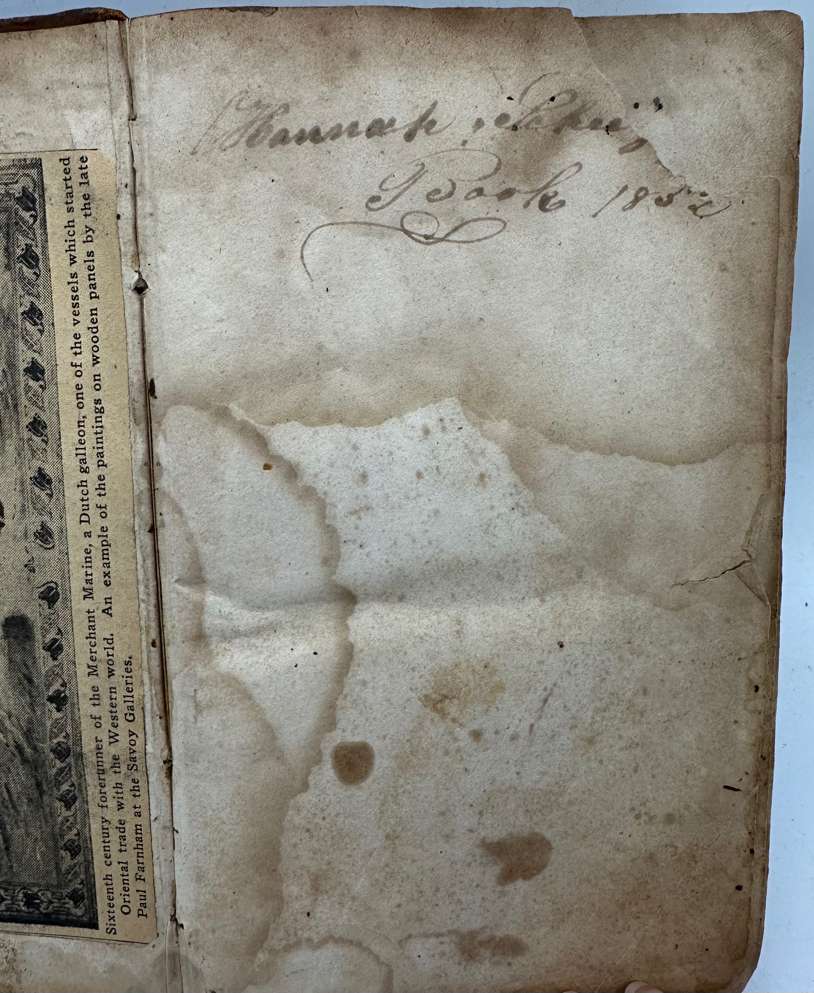 Sixteenth century forerunner of the Merchant Marine, a Dutch galleon, one of the vessels which started
Oriental trade with the Western world. An example of the paintings on wooden panels by the late
Paul Farnham at the Savoy Galleries.
Hannah
Book 1852